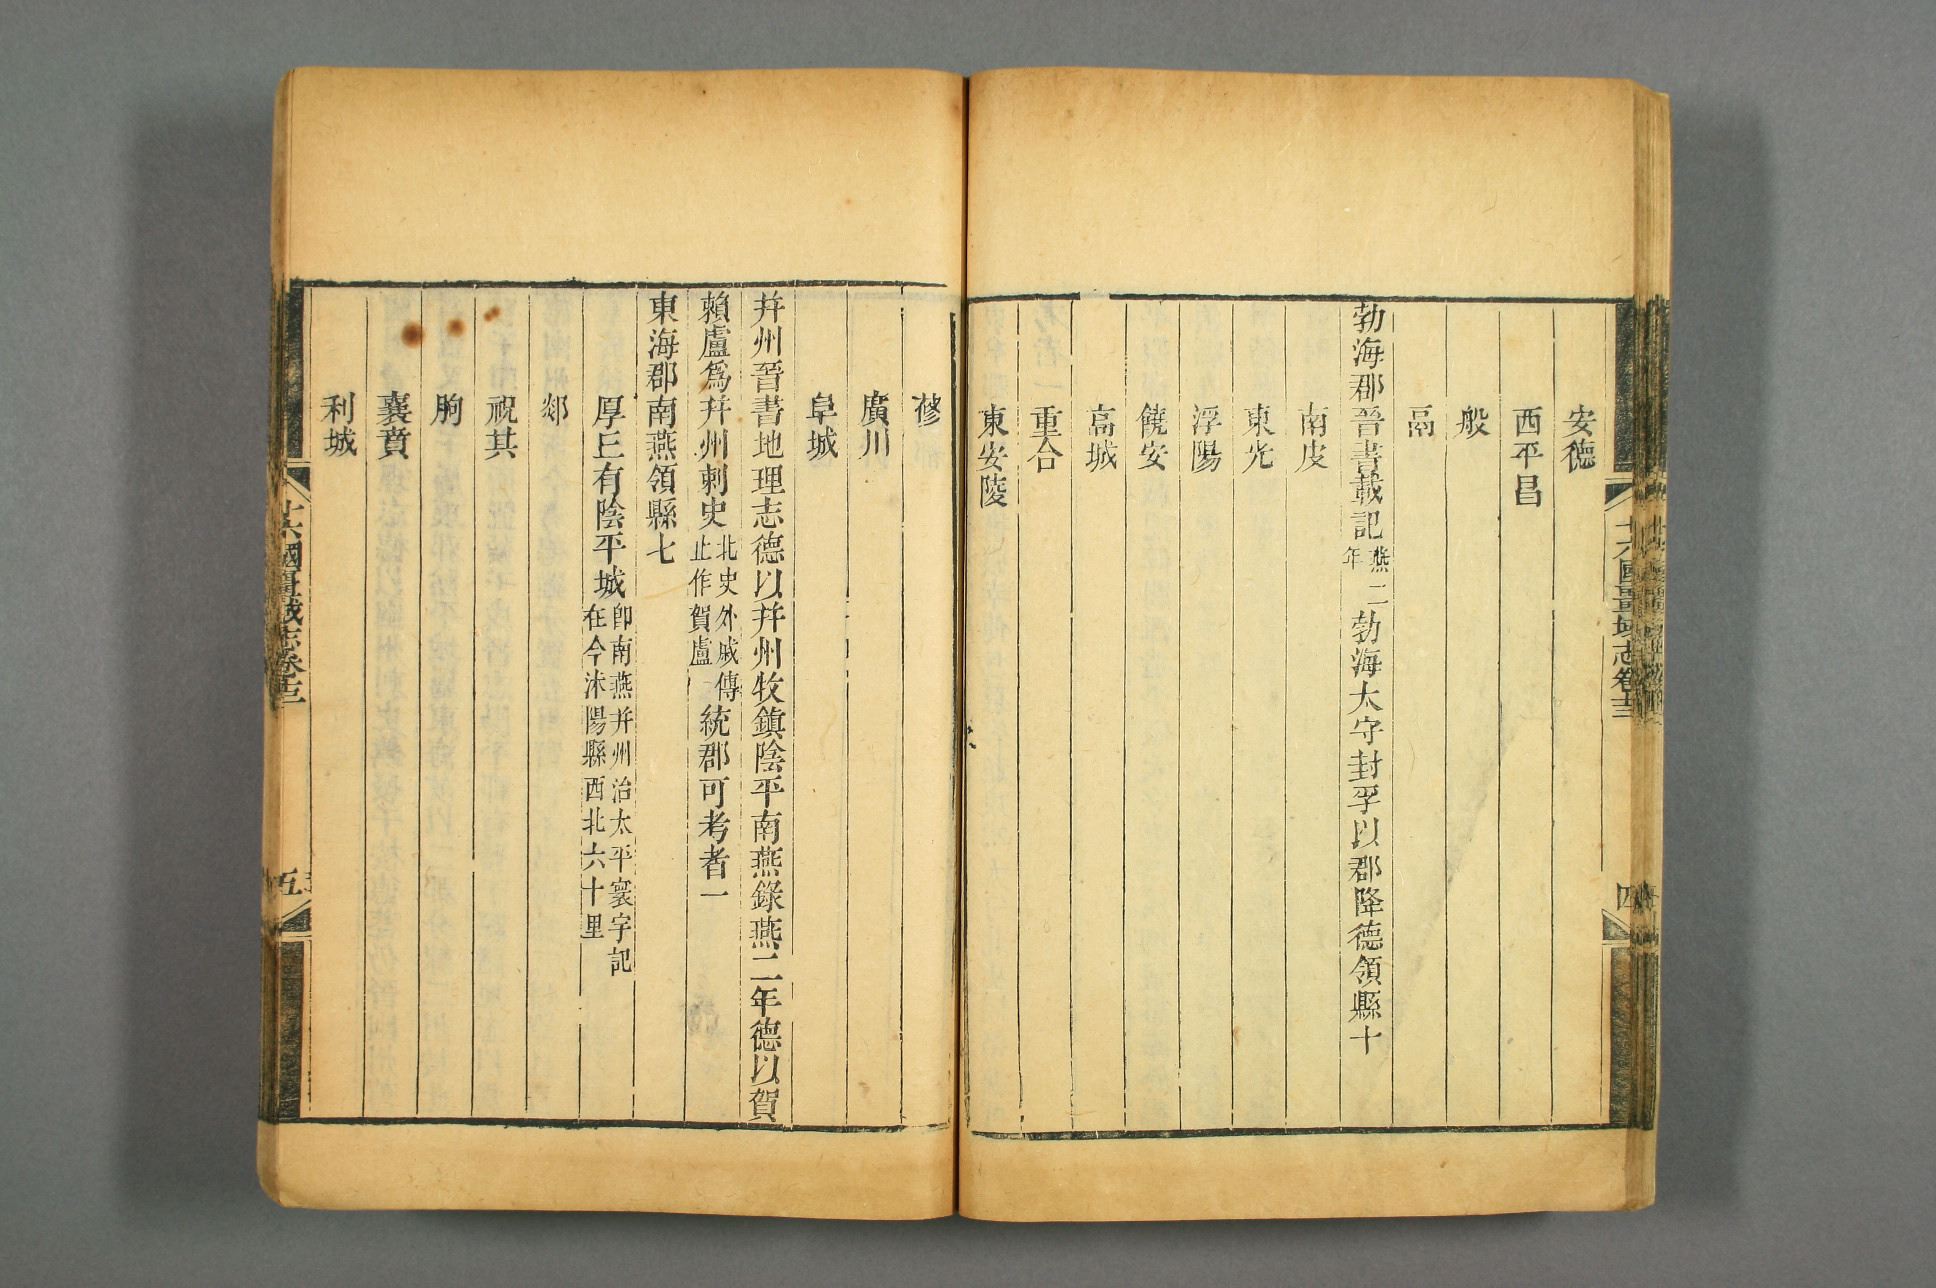 安德
西平昌
般
鬲
勃海郡晉書載記燕二年勃海太守封孚以郡降德領縣十
南皮
東光
浮陽
饒安
高城
重合
東安陵
蓨
廣川
阜城
幷州晉書地理志德以幷州牧鎮陰平南燕錄燕二年德以賀
賴盧爲幷州刺史北史外戚傳止作賀盧統郡可考者一
東海郡南燕領縣七
厚丘有陰平城卽南燕幷州治太平寰宇記在今沭陽縣西北六十里
郯
祝其
朐
襄賁
利城
十六國疆域志卷十三
四
十六國疆域志卷十三
五